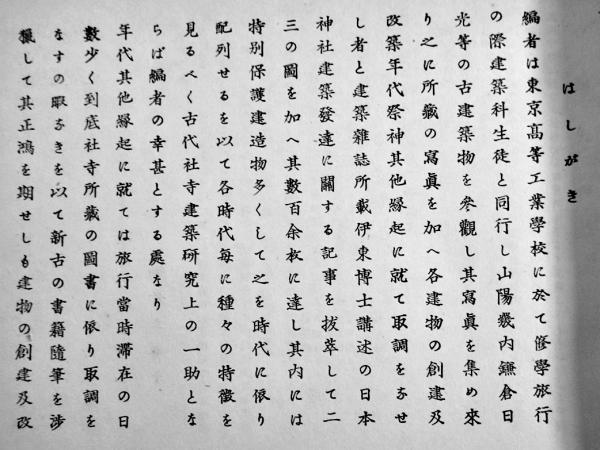 はしがき
編者は東京高等工業學校に於て修學旅行
の際建築科生徒と同行し山陽畿內鎌倉日
光等の古建築物を參觀し其寫眞を集め來
り之に所藏の寫眞を加へ各建物の創建及
改築年代祭神其他緣起に就て取調をなせ
し者と建築雜誌所載伊東博士講述の日本
神社建築發達に關する記事を拔萃して二
三の圖を加へ其數百余枚に達し其內には
特別保護建造物多くして之を時代に依り
配列せるを以て各時代每に種々の特徵を
見るべく古代社寺建築硏究上の一助とな
らば編者の幸甚とする處なり
年代其他緣起に就ては旅行當時滯在の日
數少く到底社寺所藏の圖書に依り取調を
なすの暇なきを以て新古の書籍隨筆を涉
獵して其正鴻を期せしも建物の創建及改